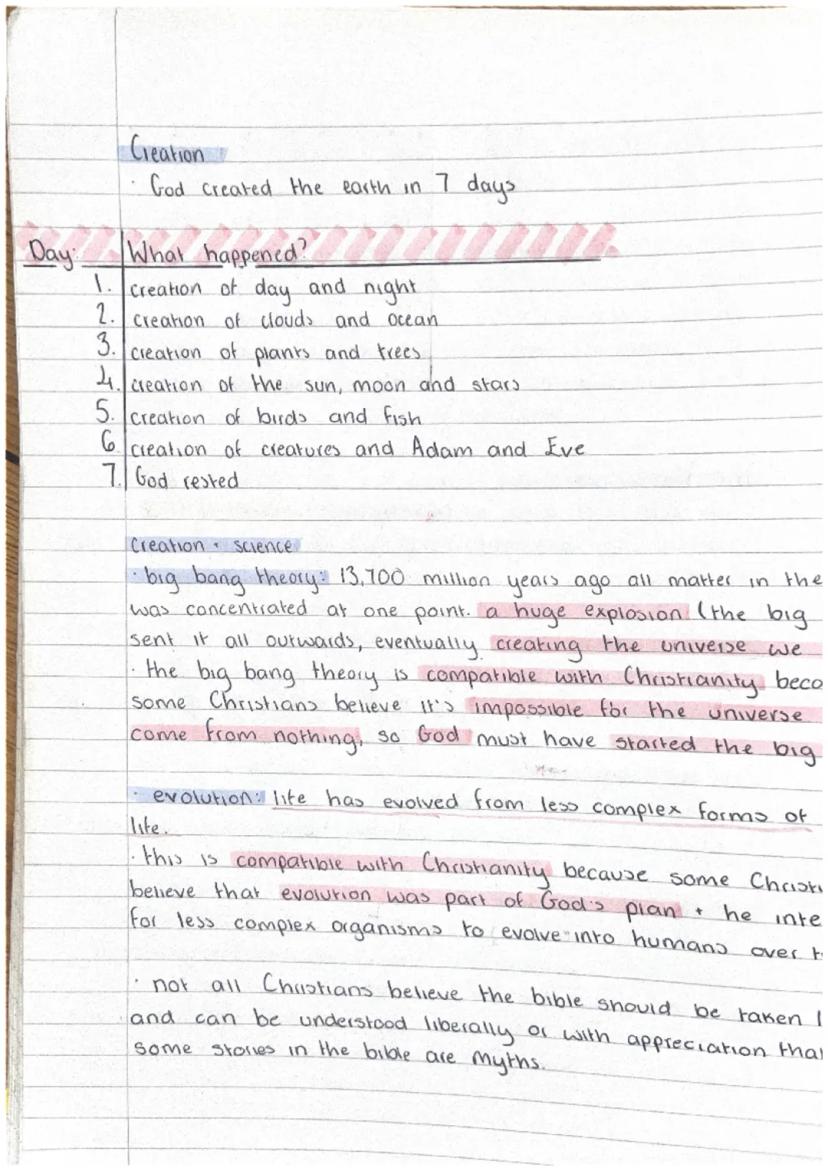 Creation
· God created the earth in 7 days
Day: What happened?
1. creation of day and night
2. creation of clouds and ocean
3. creation of plants and trees
4. creation of the sun, moon and stars
5. creation of birds and fish
6. creation of creatures and Adam and Eve
7. God rested
Creation + science
· big bang theory: 13,700 million years ago all matter in the
was concentrated at one point. a huge explosion (the big
sent it all outwards, eventually creating the universe we
· the big bang theory is compatible with Christianity beca
some Christians believe it's impossible for the universe
come from nothing, so God must have started the big
· evolution: life has evolved from less complex forms of
life.
· this is compatible with Christianity because some Christi
believe that evolution was part of God's plan + he inte
for less complex organisms to evolve into humans over t
· not all Christians believe the bible should be taken l
and can be understood liberally or with appreciation tha
some stories in the bible are myths.